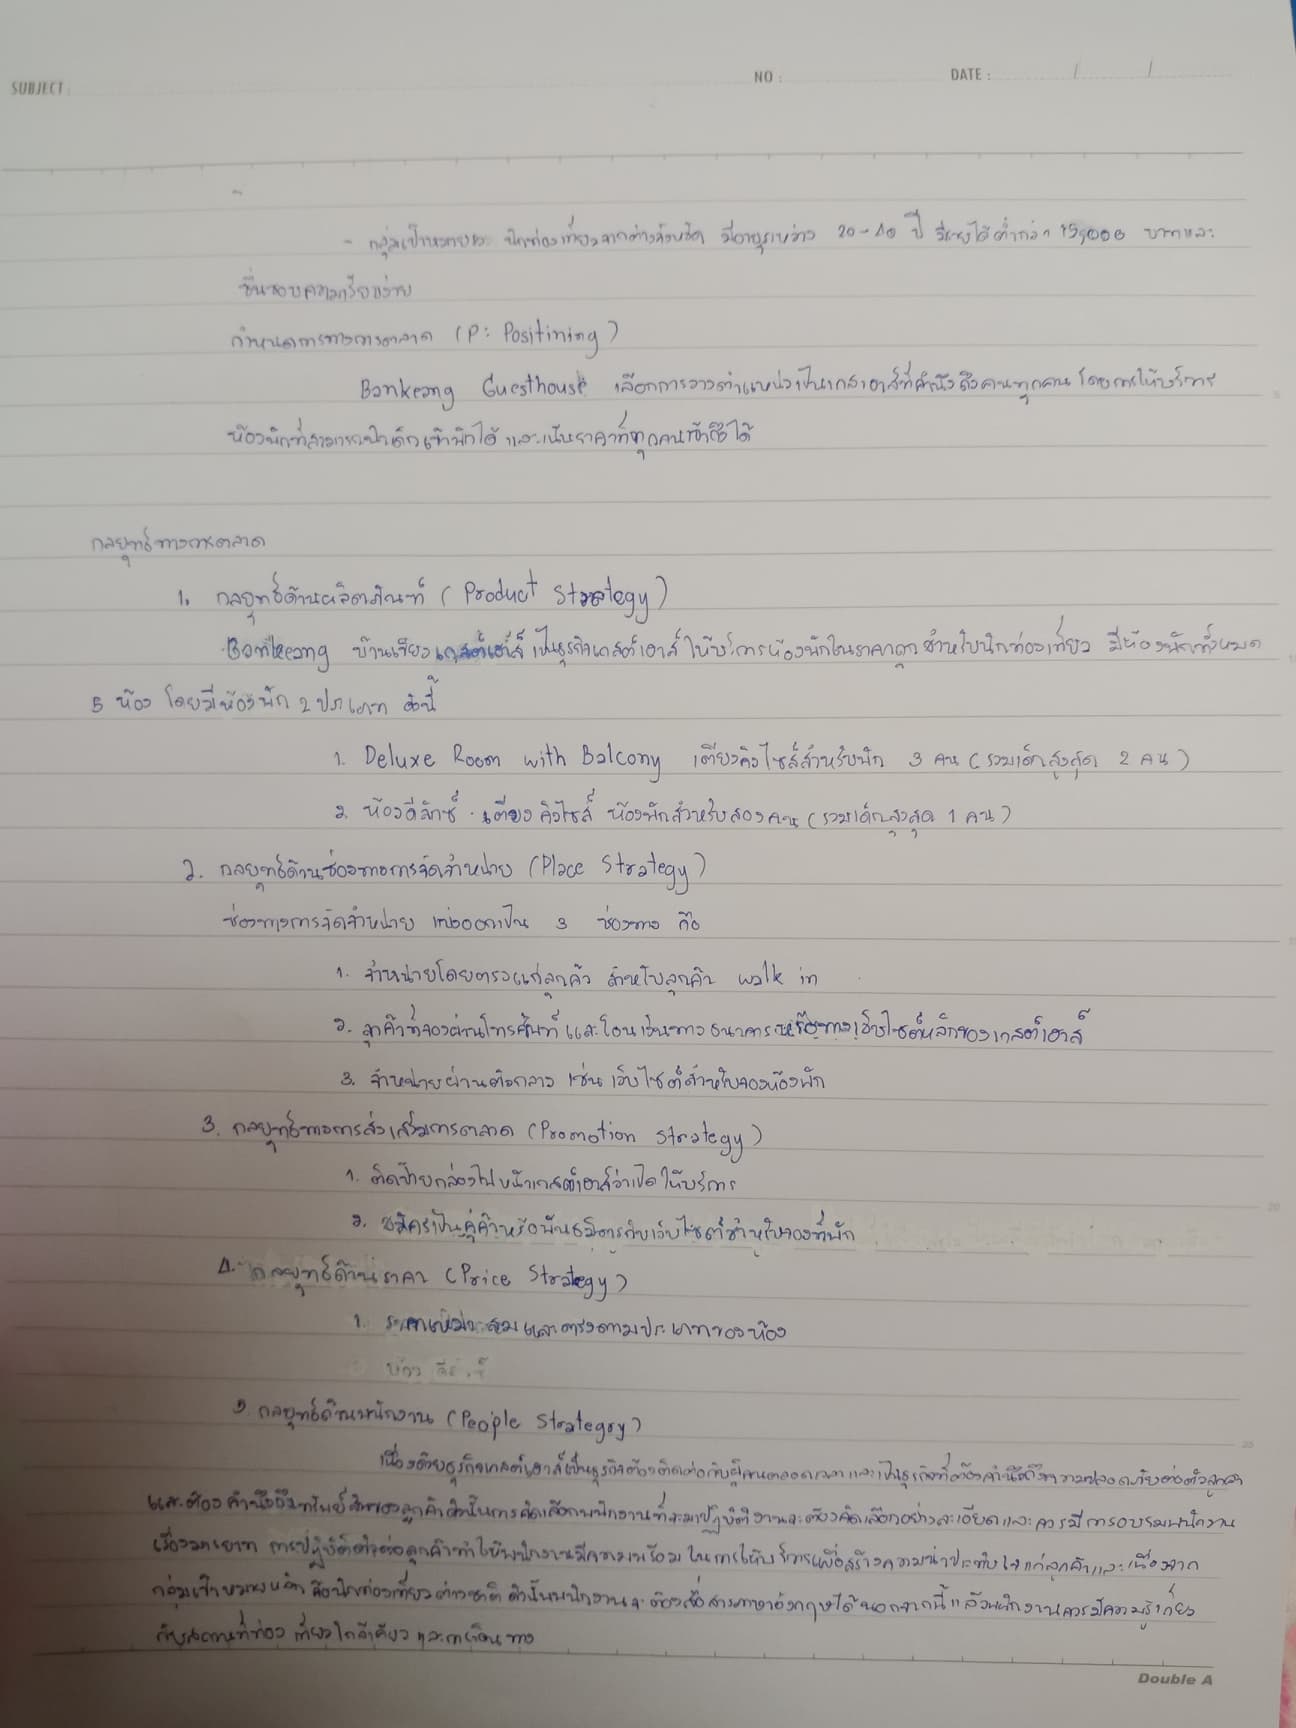 SUBJECT :
NO :
DATE : / /
- กลุ่มเป้าหมายรอง นักท่องเที่ยวจากต่างจังหวัด มีอายุระหว่าง 20-40 ปี มีรายได้ต่ำกว่า 15,000 บาทและ
ชื่นชอบความเรียบง่าย
กำหนดการทางการตลาด (P: Positining)
Bankeang Guesthouse เลือกการวางตำแหน่งเป็นเกสเฮาส์ที่คำนึงถึงคนทุกคน โดยการให้บริการ
ห้องพักที่สามารถนำเด็กเข้าพักได้ และเน้นราคาที่ทุกคนเข้าถึงได้
กลยุทธ์ทางการตลาด
1. กลยุทธ์ด้านผลิตภัณฑ์ (Product Strategy)
Bankeang บ้านเจียงเกสต์เฮ้าส์ เป็นธุรกิจเกสต์เฮาส์ ให้บริการห้องพักในราคาถูกสำหรับนักท่องเที่ยว มีห้องพักทั้งหมด
5 ห้อง โดยมีห้องพัก 2 ประเภท ดังนี้
1. Deluxe Room with Balcony เตียงคิงไซส์สำหรับพัก 3 คน (รวมเด็กสูงสุด 2 คน)
2. ห้องดีลักซ์ เตียงคิงไซส์ ห้องพักสำหรับสองคน (รวมเด็กสูงสุด 1 คน)
2. กลยุทธ์ด้านช่องทางการจัดจำหน่าย (Place Strategy)
ช่องทางการจัดจำหน่าย แบ่งออกเป็น 3 ช่องทาง คือ
1. จำหน่ายโดยตรงแก่ลูกค้า สำหรับลูกค้า walk in
2. ลูกค้าที่จองผ่านโทรศัพท์ และโอนเงินทางธนาคารหรือทางเว็บไซต์หลักของเกสต์เฮาส์
3. จำหน่ายผ่านตัวกลาง เช่น เว็บไซต์สำหรับจองห้องพัก
3. กลยุทธ์ทางการส่งเสริมการตลาด (Promotion Strategy)
1. ติดป้ายกล่องไฟหน้าเกสต์เฮาส์ว่าเปิดให้บริการ
2. สมัครเป็นคู่ค้าหรือพันธมิตรกับเว็บไซต์สำหรับจองที่พัก
4. กลยุทธ์ด้านราคา (Price Strategy)
1. ราคาเหมาะสมและตรงตามประเภทของห้อง
ห้อง
5. กลยุทธ์ด้านพนักงาน (People Strategoy)
เนื่องด้วยธุรกิจเกสต์เฮาส์เป็นธุรกิจต้องติดต่อกับผู้คนตลอดเวลา และเป็นธุรกิจที่ต้องคำนึงถึงความปลอดภัยต่อตัวลูกค้า
และต้องคำนึงถึงทรัพย์สินของลูกค้า ดังนั้นการคัดเลือกพนักงานที่จะมาปฏิบัติงานจะต้องคัดเลือกอย่างละเอียดและควรมีการอบรมพนักงาน
เรื่องมารยาท การปฏิบัติตัวต่อลูกค้าทำให้พนักงานมีความพร้อมในการให้บริการเพื่อสร้างความน่าประทับใจแก่ลูกค้าและเนื่องจาก
กลุ่มเป้าหมายหลัก คือนักท่องเที่ยวต่างชาติ ดังนั้นพนักงานจะต้องสื่อสารภาษาอังกฤษได้ นอกจากนี้แล้วพนักงานควรมีความรู้เกี่ยว
กับสถานที่ท่องเที่ยวใกล้เคียง และการเดินทาง
Double A